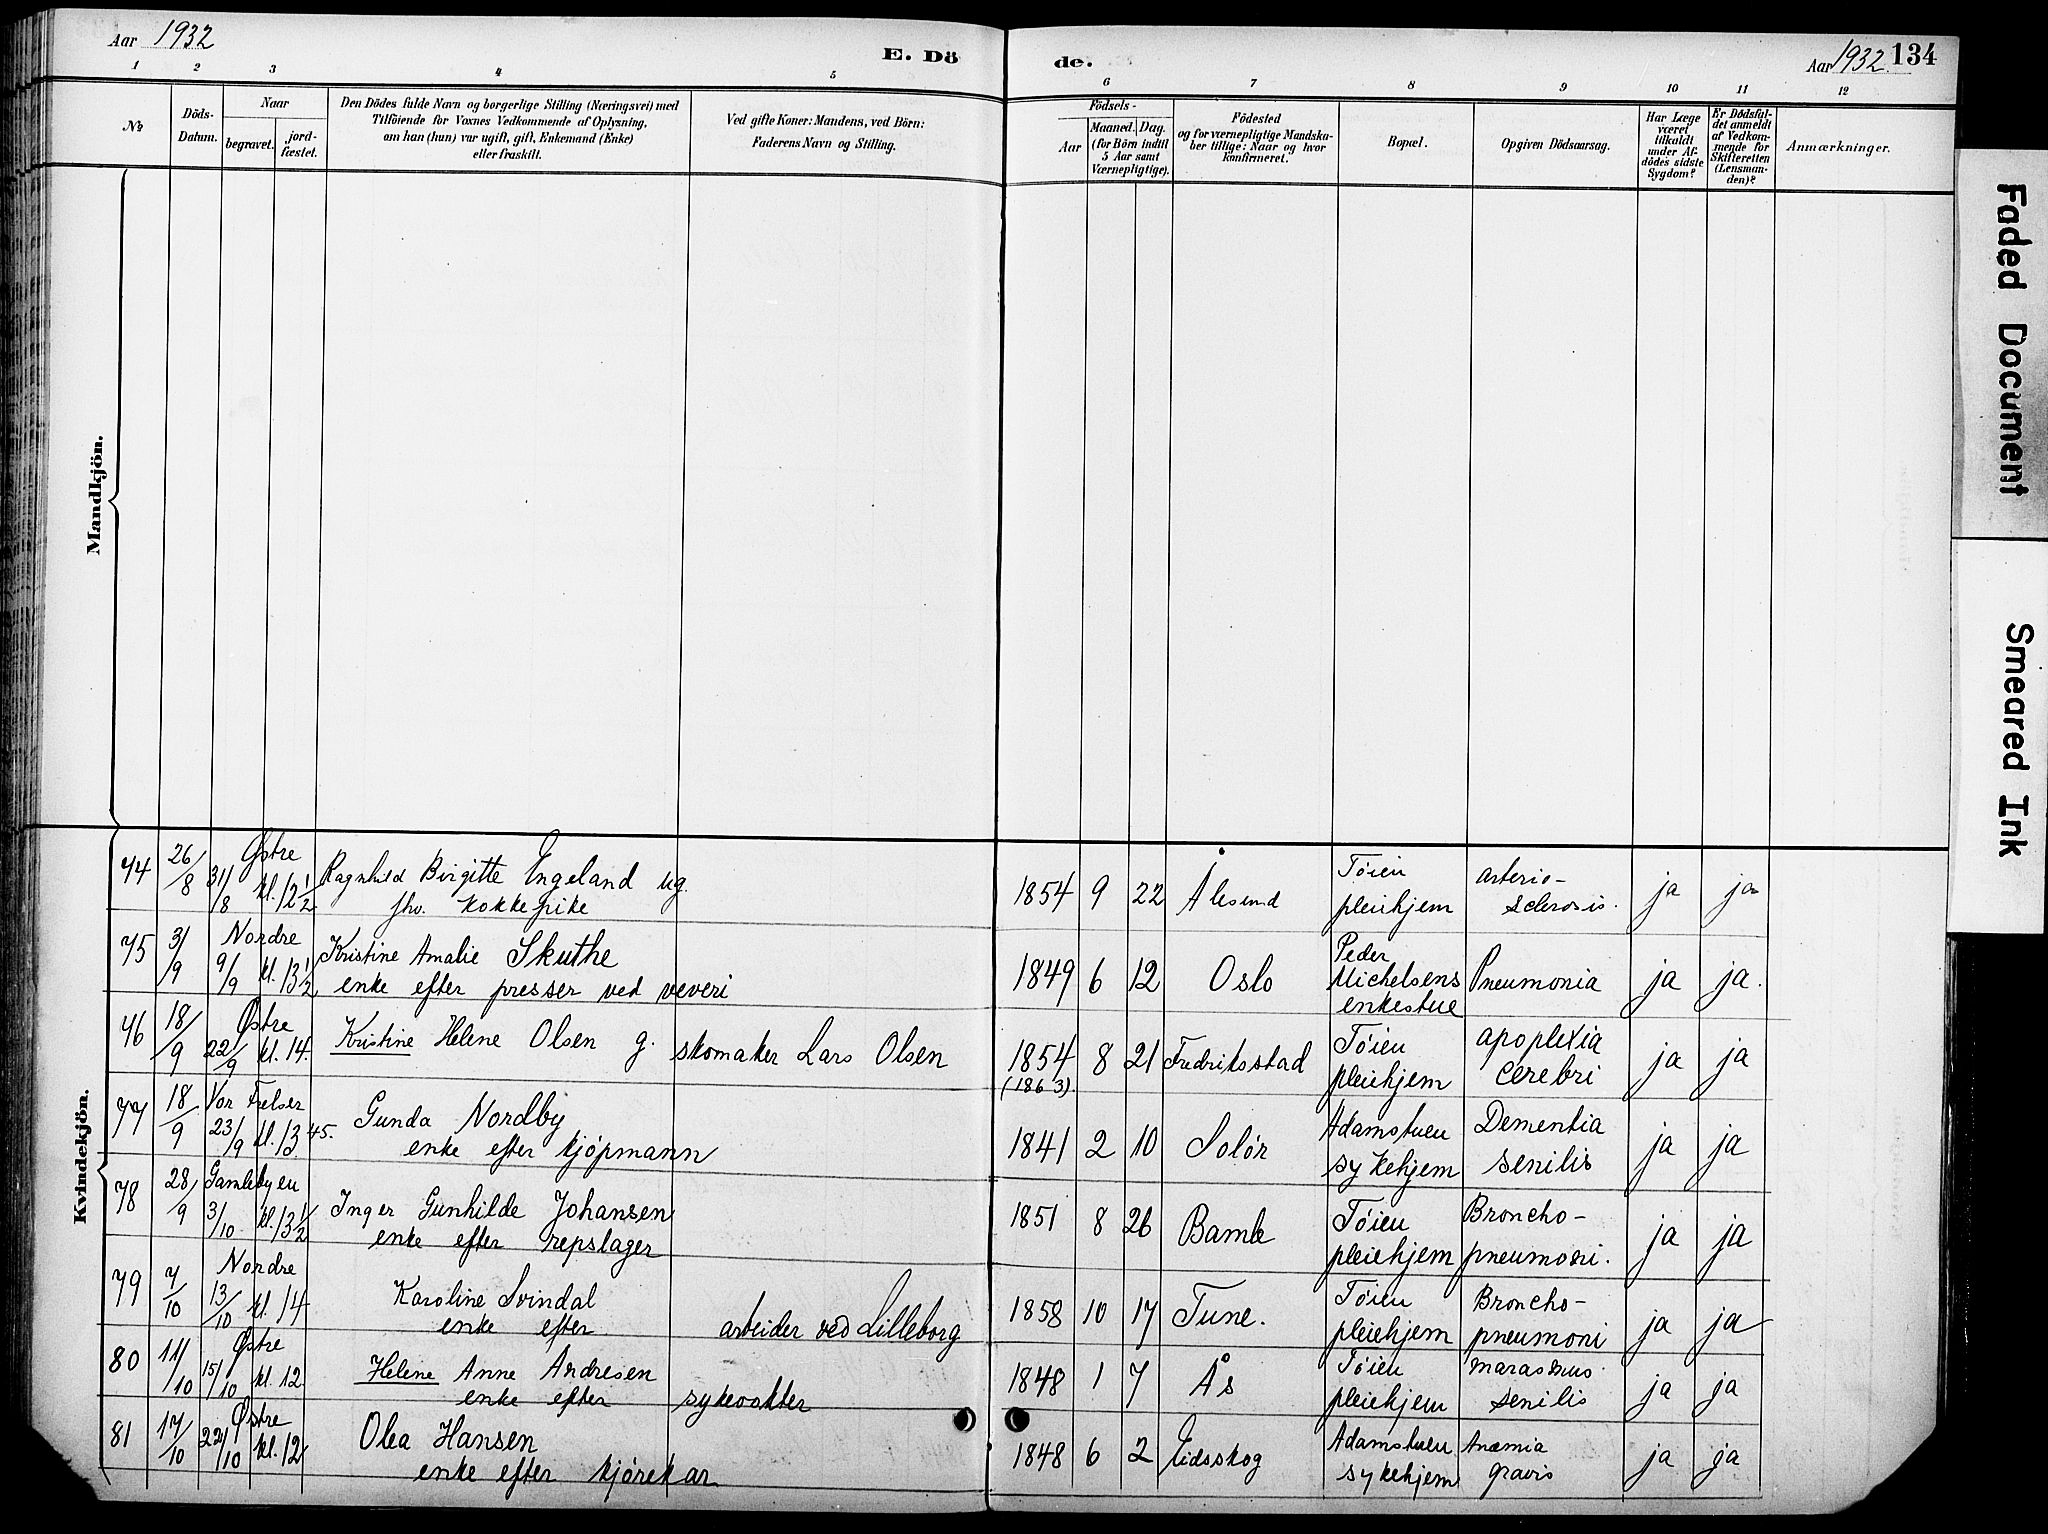 Aar 1932
E. Dö
de.
Aar 1932. 134
1 2 3 4 5 6 7 8 9 10 11 12
№
Döds-
Datum.
Naar
begravet.
jord-
fæstet.
Den Dödes fulde Navn og borgerlige Stilling (Næringsvei) med
Tilföiende for Voxnes Vedkommende af Oplysning,
om han (hun) var ugift, gift, Enkemand (Enke)
eller fraskilt.
Ved gifte Koner: Mandens, ved Börn:
Faderens Navn og Stilling.
Födsels-
Aar
Maaned. Dag.
(for Börn indtil
5 Aar samt
Værnepligtige).
Födested
og for værnepligtige Mandska-
ber tillige: Naar og hvor
konfirmeret.
Bopæl.
Opgiven Dödsaarsag.
Har Læge
været
tilkaldt
under Af-
dödes sidste
Sygdom?
Er Dödsfal-
det anmeldt
af Vedkom-
mende for
Skifteretten
(Lensman-
den)?
Anmærkninger.
Mandkjön.
Kvindekjön.
74 26/8 Østre
31/8 kl. 12 1/2
Ragnhild Birgitte Engeland ug.
fhv. kokkepike
1854 9 22 Ålesund
Tøien
pleiehjem
arterio-
sclerosis.
ja ja
75 3/9 Nordre
9/9 kl. 13 1/2
Kristine Amalie Skuthe
enke efter presser ved veveri
1849 6 12 Oslo
Peder
Michelsens
enkestue
Pneumonia
ja ja.
76 18/9 Østre
22/9 kl. 14.
Kristine Helene Olsen g.
skomaker Lars Olsen
1854 8 21 Fredriksstad
(1863)
Tøien
pleiehjem
apoplexia
cerebri
ja ja
77 18/9 Vor Frelser
23/9 kl. 13 45.
Gunda Nordby
enke efter kjøpmann
1841 2 10 Solør
Adamstuen
sykehjem
Dementia
senilis
ja ja
78 28/9 Gamlebyen
3/10 kl. 13 1/2
Inger Gunhilde Johansen
enke efter repslager
1851 8 26 Bamle
Tøien
pleiehjem
Broncho-
pneumoni.
ja ja
79 7/10 Nordre
13/10 kl. 14
Karoline Svindal
enke efter
arbeider ved Lilleborg
1858 10 17 Tune.
Tøien
pleiehjem
Broncho-
pneumoni
ja ja
80 11/10 Østre
15/10 kl. 12
Helene Anne Andresen
enke efter
sykevokter
1848 1 7 Ås
Tøien
pleiehjem
marasmus
senilis
ja ja
81 17/10 Østre
22/10 kl. 12
Olea Hansen
enke efter kjørekar
1848 6 2 Eidsskog
Adamstuen
sykehjem
Anæmia
gravis
ja ja
Faded Document
Smeared Ink